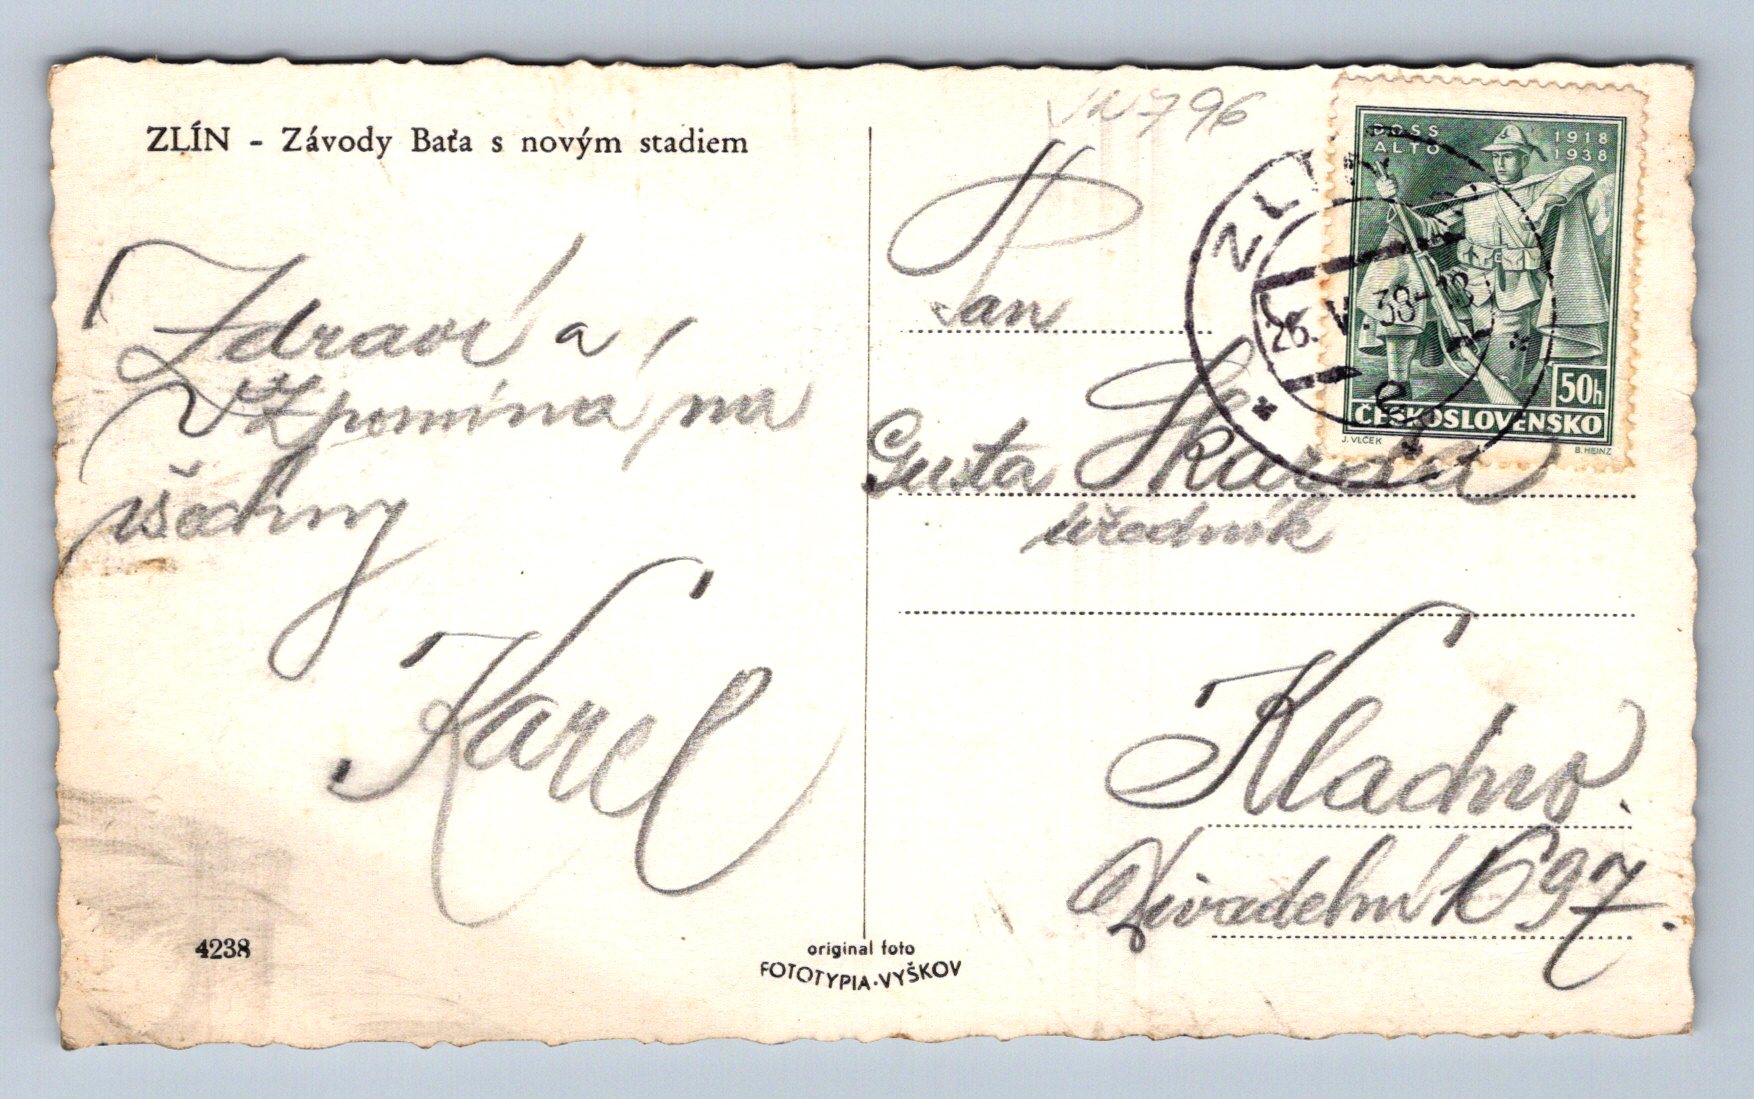 ZLÍN - Závody Baťa s novým stadiem
Zdraví a
vzpomíná na
všechny
Karel
4238
original foto
FOTOTYPIA-VYŠKOV
796
Pan
Gusta
úředník
Kladno.
Divadelní 1697.
DOSS 1918
ALTO 1938
50h
ČESKOSLOVENSKO
J. VLČEK
B. HEINZ
ZLÍN
26. V. 38-18
e